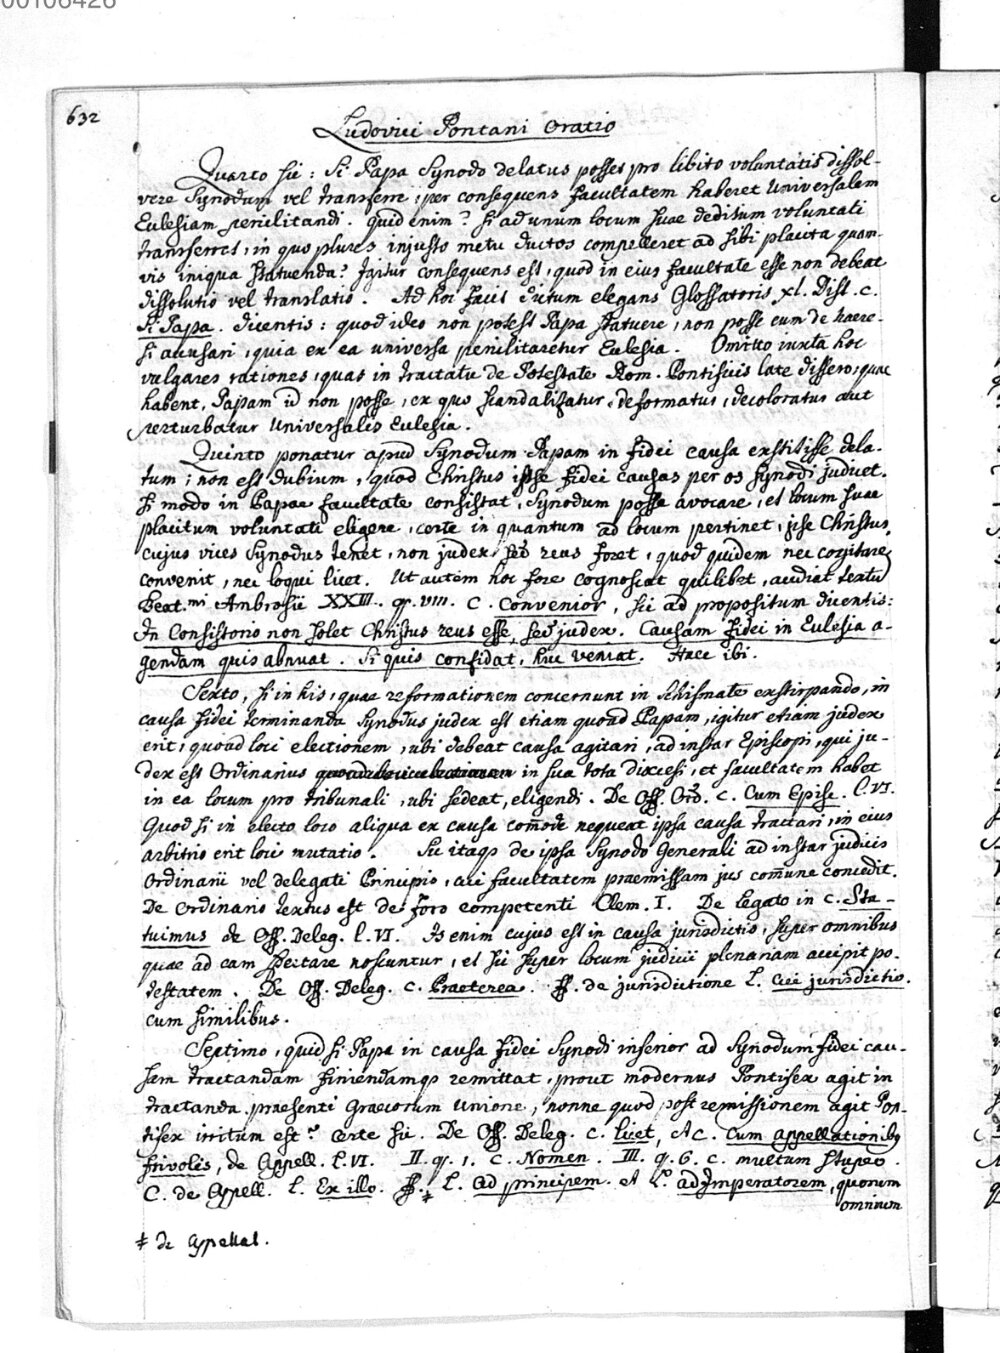 00106426
632
Ludovici Pontani Oratio
Quarto sic: Si Papa Synodo delatus posset pro libito voluntatis dissol-
vere Synodum vel transferre, per consequens facultatem haberet Universalem
Eulesiam periclitandi. Quid enim? Si ad unum locum suae deditum voluntati
transferret, in quo plures injusto metu ductos compelleret ad sibi placita quam-
vis iniqua statuenda? Igitur consequens est, quod in eius facultate esse non debeat
dissolutio vel translatio. Ad hoc facit dictum elegans Glossatoris XL. Dist. c.
Si Papa. dicentis: quod ideo non potest Papa statuere, non posse eum de haere-
si accusari, quia ex ea universa periclitaretur Eclesia. Omitto iuxta hoc
vulgares rationes, quas in tractatu de Potestate Rom. Pontificis late differo, quae
habent, Papam id non posse, ex quo scandalizatur, deformatur, decoloratur aut
perturbatur Universalis Eclesia.
Quinto ponatur apud Synodum Papam in fidei causa exstitisse dela-
tum; non est dubium, quod Christus ipse fidei causas per os Synodi judicet.
Si modo in Papae facultate consistat, Synodum posse avocare, et locum suae
placitum voluntati eligere, certe in quantum ad locum pertinet, ipse Christus,
cujus vices Synodus tenet, non judex, sed reus foret, quod quidem nec cogitare
convenit, nec loqui licet. Ut autem hoc fore cognoscat quilibet, audiat textum
Beat.mi Ambrosii XXIII. q. VIII. C. Convenior, sic ad propositum dicentis:
In Consistorio non solet Christus reus esse, sed judex. Causam fidei in Eclesia a-
gendam quis abnuat. Si quis confidat, huc veniat. Haec ibi.
Sexto, si in his, quae reformationem concernunt in schismate exstirpando, in
causa fidei terminanda Synodus judex est etiam quoad Papam, igitur etiam judex
erit, quoad loci electionem, ubi debeat causa agitari, ad instar Episcopi, qui ju-
dex est Ordinarius in sua tota diœcesi, et facultatem habet
in ea locum pro tribunali, ubi sedeat, eligendi. De Off. Ord. c. Cum Episc. l. VI.
Quod si in electo loco aliqua ex causa com̄ode nequeat ipsa causa tractari, in eius
arbitrio erit loci mutatio. Sic itaq de ipsa Synodo Generali ad instar judicis
Ordinarii vel delegati Principis, cui facultatem praemissam jus com̄une concedit.
De Ordinario textus est de foro competenti Clem. I. De legato in c. Sta-
tuimus de Off. Deleg. l. VI. Is enim cujus est in causa jurisdictio, super omnibus
quae ad eam spectare noscuntur, et sic super locum judicii plenariam accipit po-
testatem. De Off. Deleg. c. Praeterea. ff. de jurisdictione L. cui jurisdictio.
cum similibus.
Septimo, quid si Papa in causa fidei Synodi inferior ad Synodum fidei cau-
sam tractandam finiendamq remittat, prout modernus Pontifex agit in
tractanda praesenti Graecorum Unione, nonne quod post remissionem agit Pon-
tifex irritum est? Certe sic. De Off. Deleg. c. licet, Ac. Cum appellationib9
frivolis, de Appell. l. VI. II. q. 1. C. Nomen. III. q. 6. c. multum stupeo.
C. de Appell. L. Ex illo. ff. ‡ L. ad principem. et L. ad Imperatorem, quorum
omnium
‡ de Appellat.